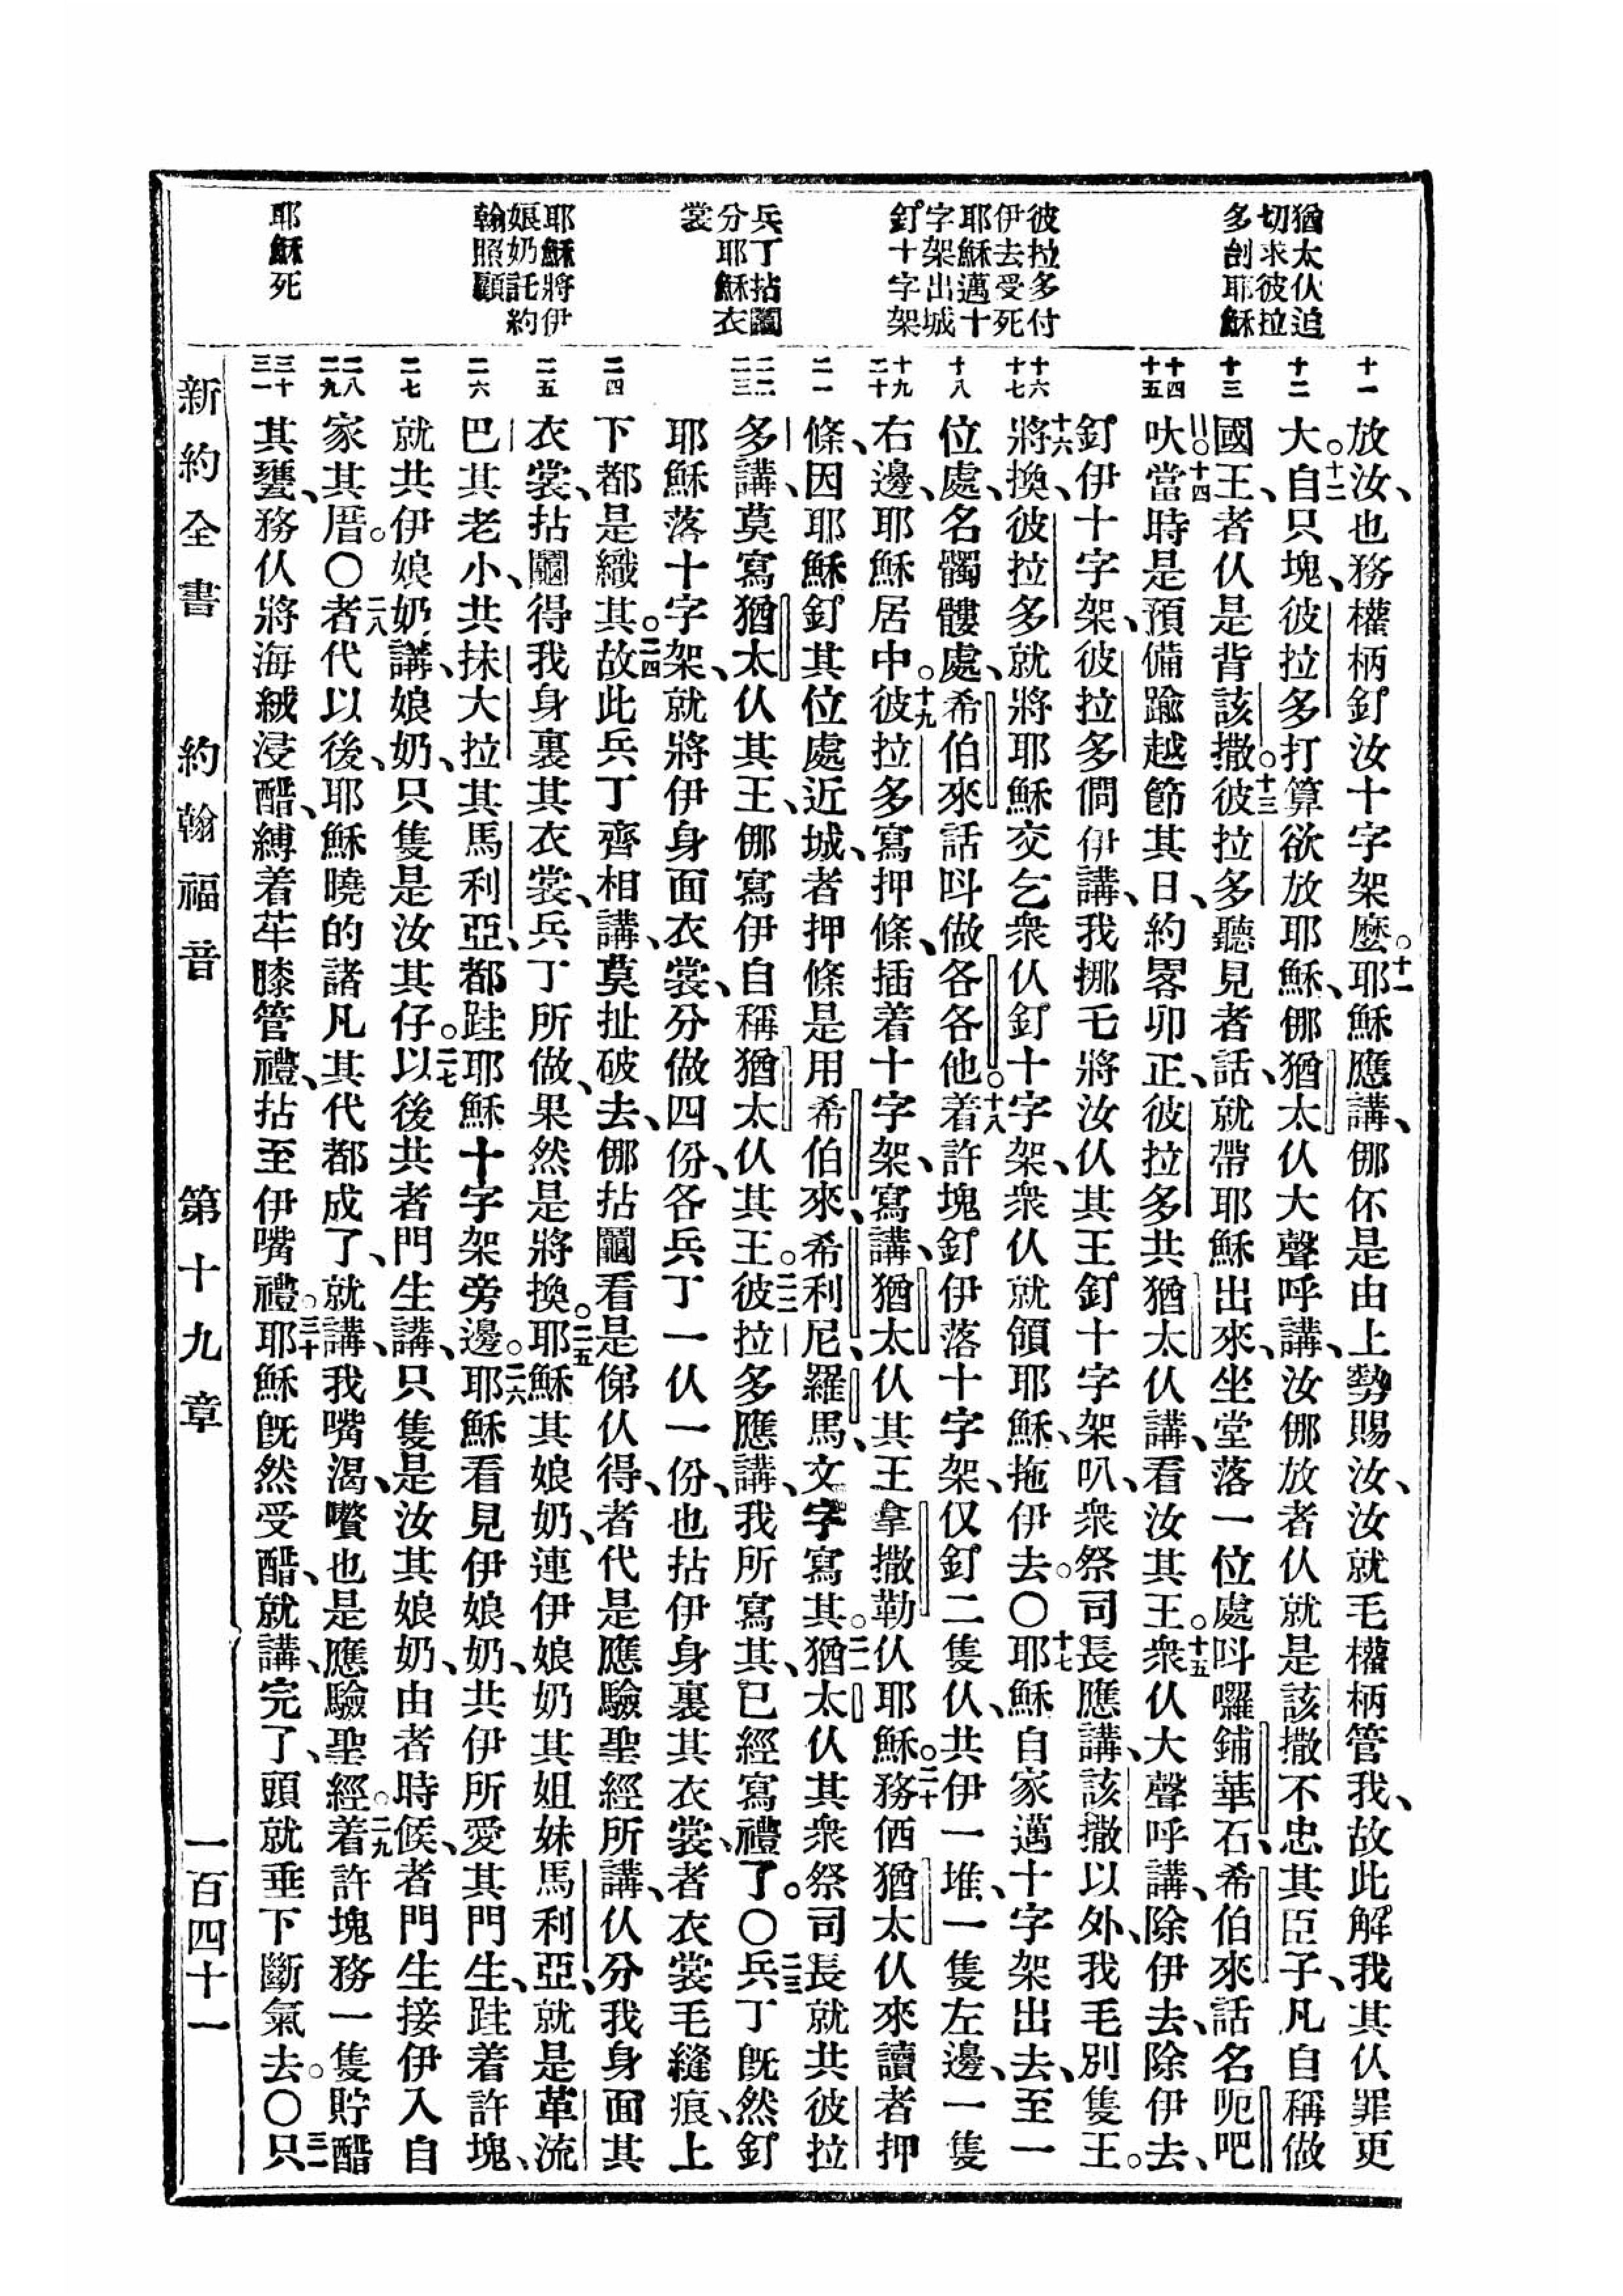 猶太仫追
切求彼拉
多刣耶穌
彼拉多付
伊去受死
耶穌邁十
字架出城
釘十字架
兵丁拈鬮
分耶穌衣
裳
耶穌將伊
娘奶託約
翰照顧
耶穌死
十一
十二
十三
十四
十五
十六
十七
十八
十九
二十
二一
二二
二三
二四
二五
二六
二七
二八
二九
三十
三一
放汝、也務權柄釘汝十字架麽。十一耶穌應講、倻伓是由上勢賜汝、汝就毛權柄管我、故此解我其仫罪更
大。十二自只塊、彼拉多打算欲放耶穌、倻猶太仫大聲呼講、汝倻放者仫就是該撒不忠其臣子、凡自稱做
國王、者仫是背該撒。十三彼拉多聽見者話、就帶耶穌出來、坐堂落一位處呌囉鋪華石、希伯來話名呃吧
吠。十四當時是預備踰越節其日、約畧卯正、彼拉多共猶太仫講、看汝其王。十五衆仫大聲呼講、除伊去、除伊去、
釘伊十字架、彼拉多僩伊講、我挪乇將汝仫其王釘十字架叭、衆祭司長應講、該撒以外、我毛別隻王。
十六將換、彼拉多就將耶穌交乞衆仫釘十字架、衆仫就領耶穌、拖伊去。〇十七耶穌自家邁十字架出去、至一
位處、名髑髏處、希伯來話呌做各各他。十八着許塊釘伊落十字架、仅釘二隻仫、共伊一堆、一隻左邊、一隻
右邊、耶穌居中。十九彼拉多寫押條、插着十字架、寫講、猶太仫其王拿撒勒仫耶穌。二十務価猶太仫來讀者押
條、因耶穌釘其位處近城、者押條是用希伯來、希利尼、羅馬、文字寫其。二一猶太仫其衆祭司長就共彼拉
多講、莫寫猶太仫其王、倻寫伊自稱猶太仫其王。二二彼拉多應講、我所寫其、已經寫禮了。〇二三兵丁旣然釘
耶穌落十字架、就將伊身面衣裳、分做四份、各兵丁一仫一份、也拈伊身裏其衣裳、者衣裳毛縫痕、上
下都是織其。二四故此兵丁齊相講、莫扯破去、倻拈鬮看是俤仫得、者代是應驗聖經所講、仫分我身面其
衣裳、拈鬮得我身裏其衣裳、兵丁所做、果然是將換。二五耶穌其娘奶、連伊娘奶其姐妹馬利亞、就是革流
巴其老小、共抹大拉其馬利亞、都跬耶穌十字架旁邊。二六耶穌看見伊娘奶、共伊所愛其門生、跬着許塊、
就共伊娘奶講、娘奶、只隻是汝其仔。二七以後共者門生講、只隻是汝其娘奶、由者時候、者門生接伊入自
家其厝。〇二八者代以後、耶穌曉的諸凡其代都成了、就講、我嘴渴嚽、也是應驗聖經。二九着許塊務一隻貯醋
其甕、務仫將海絨浸醋、縛着苼膝管禮、拈至伊嘴禮。三十耶穌旣然受醋、就講、完了、頭就垂下斷氣去。〇三一只
新約全書　約翰福音　第十九章　一百四十一